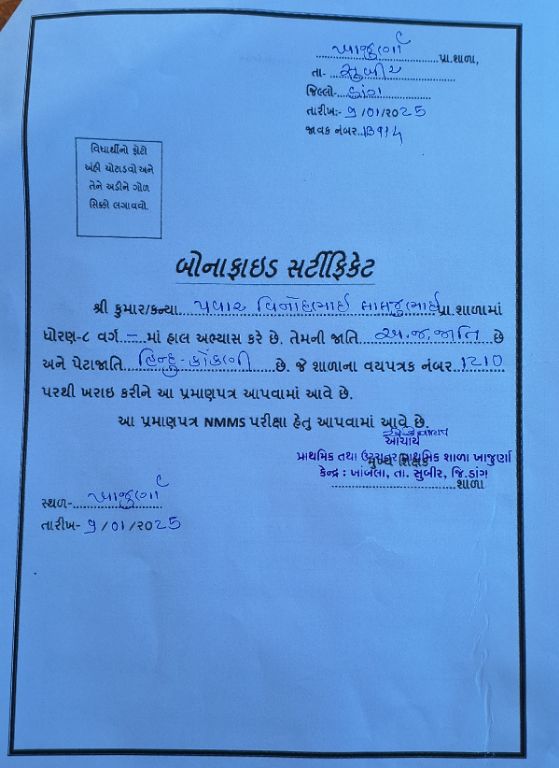 ખાજુર્ણા પ્રા.શાળા,
તા- સુબીર
જિલ્લો- ડાંગ
તારીખ:- ૧/૦૧/૨૦25
જાવક નંબર..1B94
વિદ્યાર્થીનો ફોટો
અહીં ચોટાડવો અને
તેને અડીને ગોળ
સિક્કો લગાવવો.
બોનાફાઇડ સર્ટીફિકેટ
શ્રી કુમાર/કન્યા પવાર વિનોદભાઈ પ્રા.શાળામાં
ધોરણ-૮ વર્ગ - માં હાલ અભ્યાસ કરે છે. તેમની જાતિ અ.જ.જાતિ છે
અને પેટાજાતિ હિન્દુ-કોંકણી છે. જે શાળાના વયપત્રક નંબર 1210
પરથી ખરાઇ કરીને આ પ્રમાણપત્ર આપવામાં આવે છે.
આ પ્રમાણપત્ર NMMS પરીક્ષા હેતુ આપવામાં આવે છે.
આચાર્ય
પ્રાથમિક તથા ઉચ્ચતર પ્રાથમિક શાળા ખાજુર્ણા
મુખ્ય શિક્ષક
કેન્દ્ર : ખાંબલા, તા. સુબીર, જિ.ડાંગ
શાળા
સ્થળ- ખાજુર્ણા
તારીખ- ૧/૦૧/૨૦25